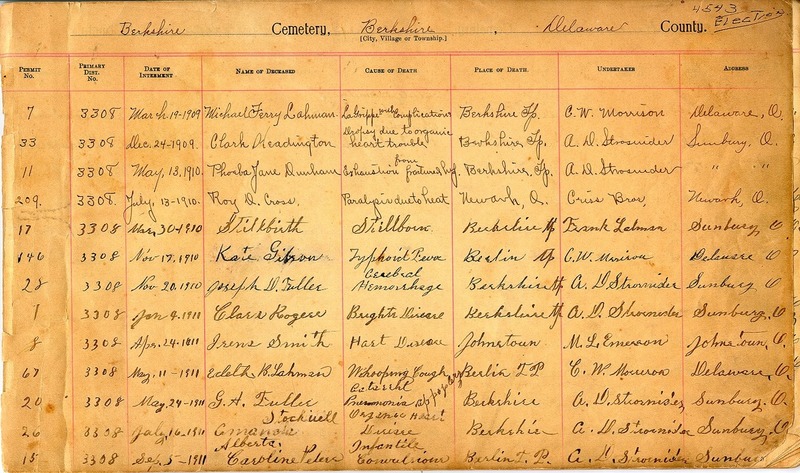 4543
Election
Berkshire Cemetery, Berkshire, Delaware County.
[City, Village or Township.]
PERMIT No. PRIMARY DIST. No. DATE OF INTERMENT NAME OF DECEASED CAUSE OF DEATH PLACE OF DEATH. UNDERTAKER ADDRESS
7 3308 March-19-1909 Michael Ferry Lahman LaGrippe with Complications Berkshire Tp. C. W. Morrison Delaware, O.
33 3308 Dec. 24-1909. Clark Readington Dropsy due to organic heart trouble Berkshire, Tp. A. D. Strosnider Sunbury, O.
11 3308 May, 13, 1910. Phoeba Jane Dunham Exhaustion from fractured Berkshire, Tp. A. D. Strosnider " "
209. 3308. July, 13-1910. Roy D. Cross, Paralysis due to heat Newark, O. Criss Bros, Newark, O.
17 3308 30-1910 Stillbirth Stillborn Berkshire Tp Frank Lahman Sunbury O
146 3308 Nov 17, 1910 Kate Gibson Typhoid Fever Berlin Tp C. W. Delaware O
28 3308 Nov 20, 1910 Joseph D. Fuller Cerebral Hemorrhage Berkshire Tp A. D. Strosnider Sunbury O
1 3308 Jan 4, 1911 Clara Rogers Brights Disease Berkshire Tp A. D. Strosnider Sunbury, O
8 3308 Apr. 24-1911 Irene Smith Hart Disease Johnstown M. L. Emerson Johnstown, O.
67 3308 May, 11-1911 Edith B. Lahman Whooping Cough Berlin T. P. C. W. Delaware, O
20 3308 May, 24-1911 G. A. Fuller Pneumonia Berkshire A. D. Strosnider Sunbury, O.
26 3308 July, 16-1911 Stockwell Organic Heart Disease Berkshire A. D. Strosnider Sunbury O
15 3308 Sep. 5-1911 Alberta Caroline Infantile Berlin T. P. A. D. Strosnider Sunbury